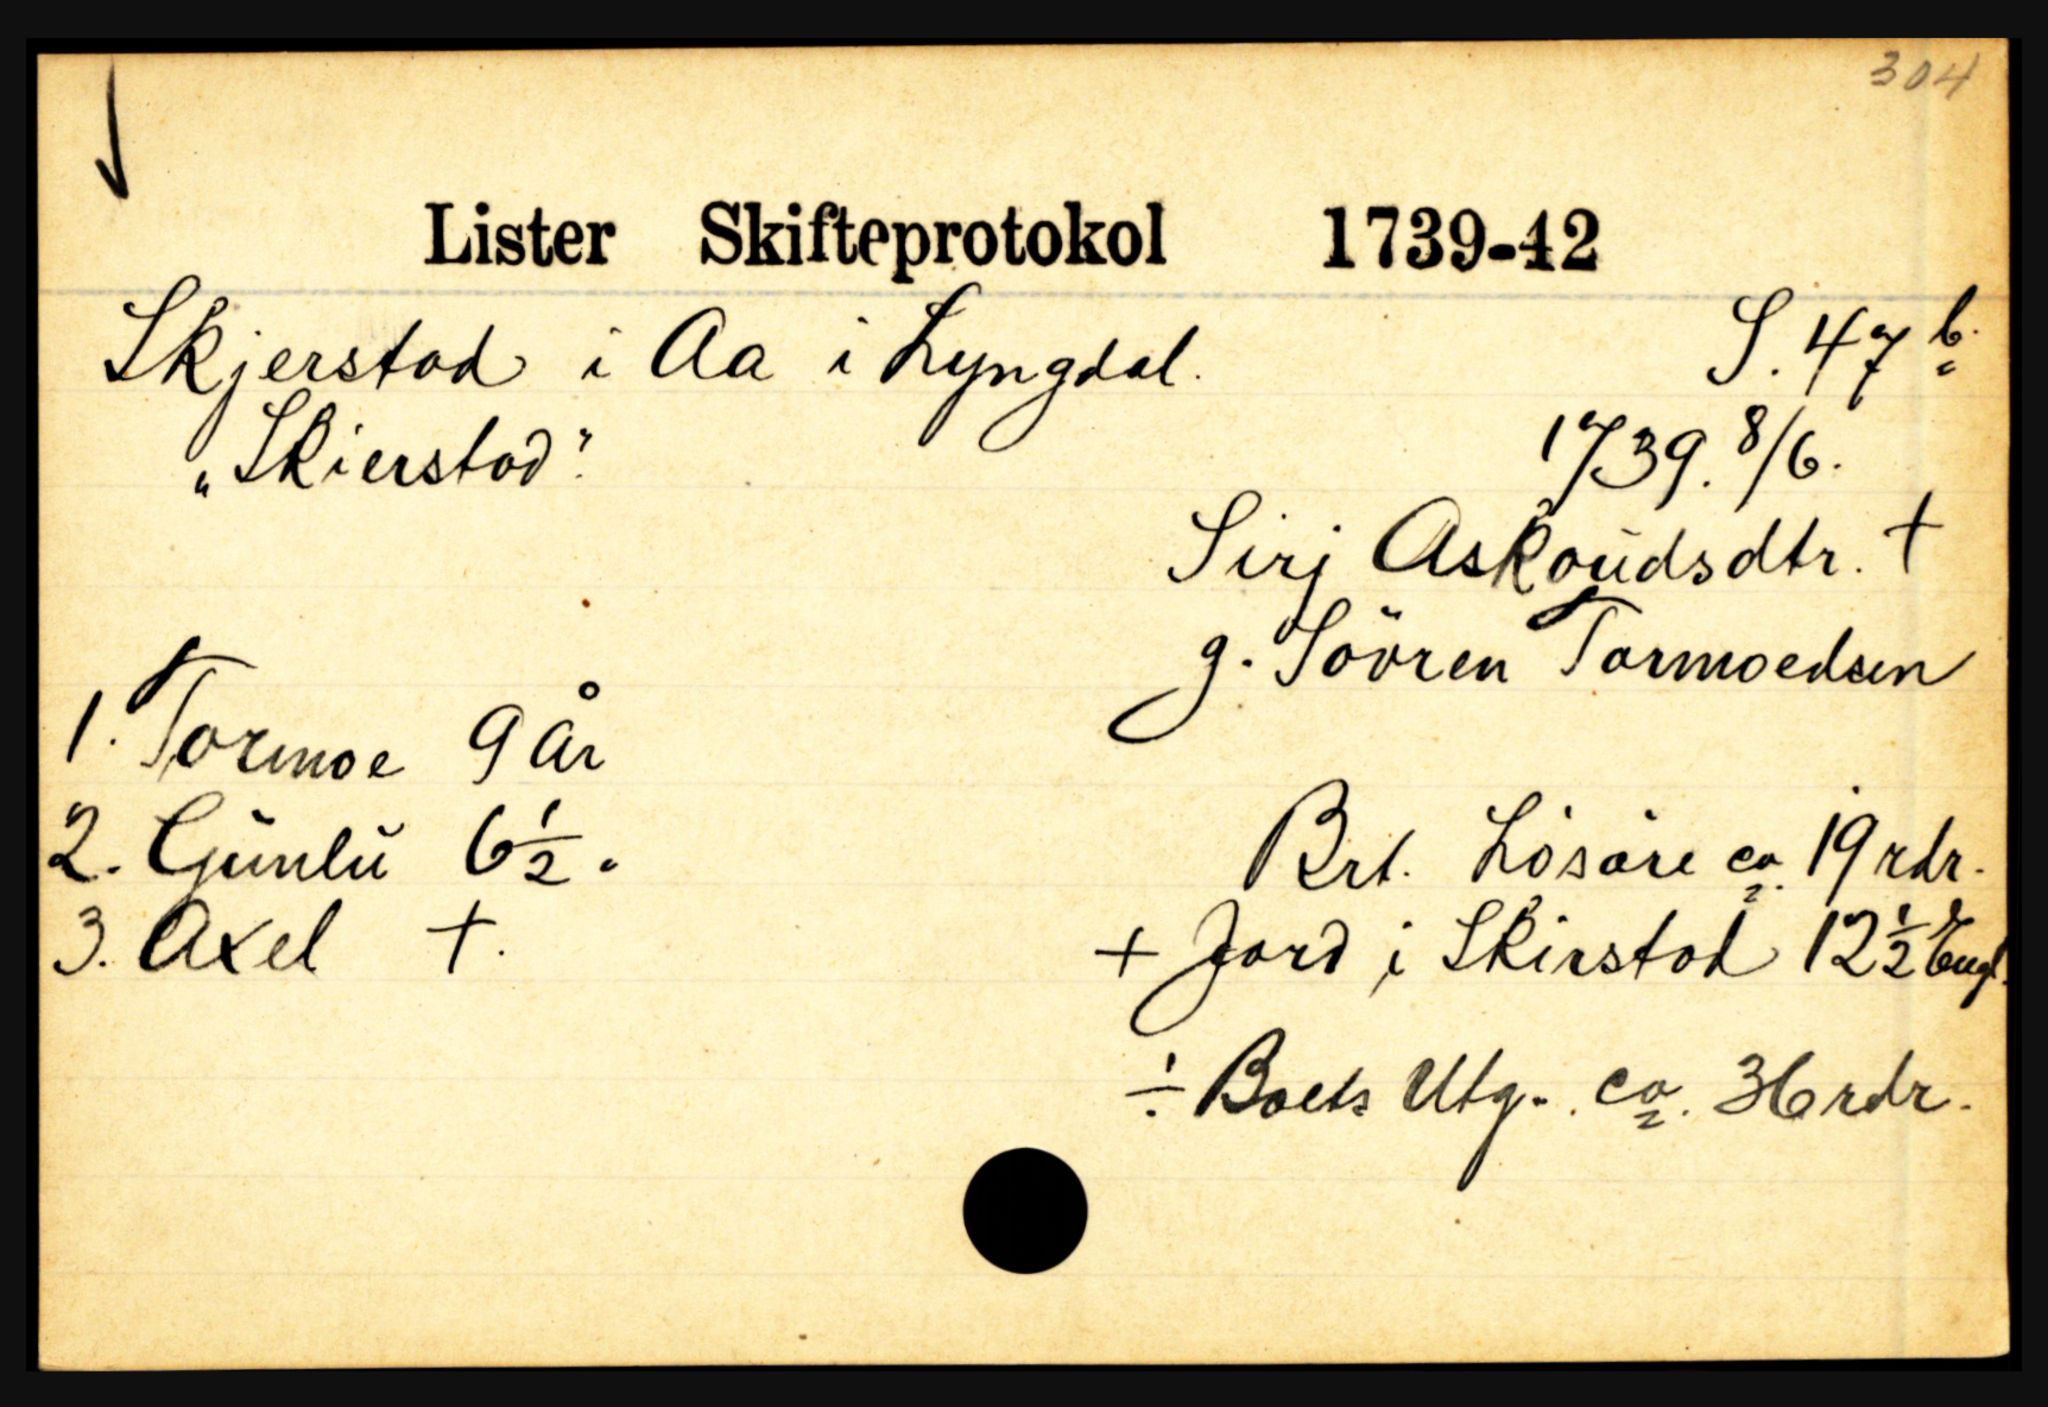 304
Lister Skifteprotokol 1739-42
Skjerstad i Aa i Lyngdal. S. 47 b.
„Skierstad". 1739. 8/6.
Sirj Askoŭdsdtr. †
g. Sövren Tarmoedsen
1. Tormoe 9 år
2. Gŭnlŭ 6 1/2 "
3. Axel †.
Brt. Lösöre ca. 19 rdr.
+ Jord i Skirstad 12 1/2 Engl.
÷ Boets Utg. ca. 36 rdr.